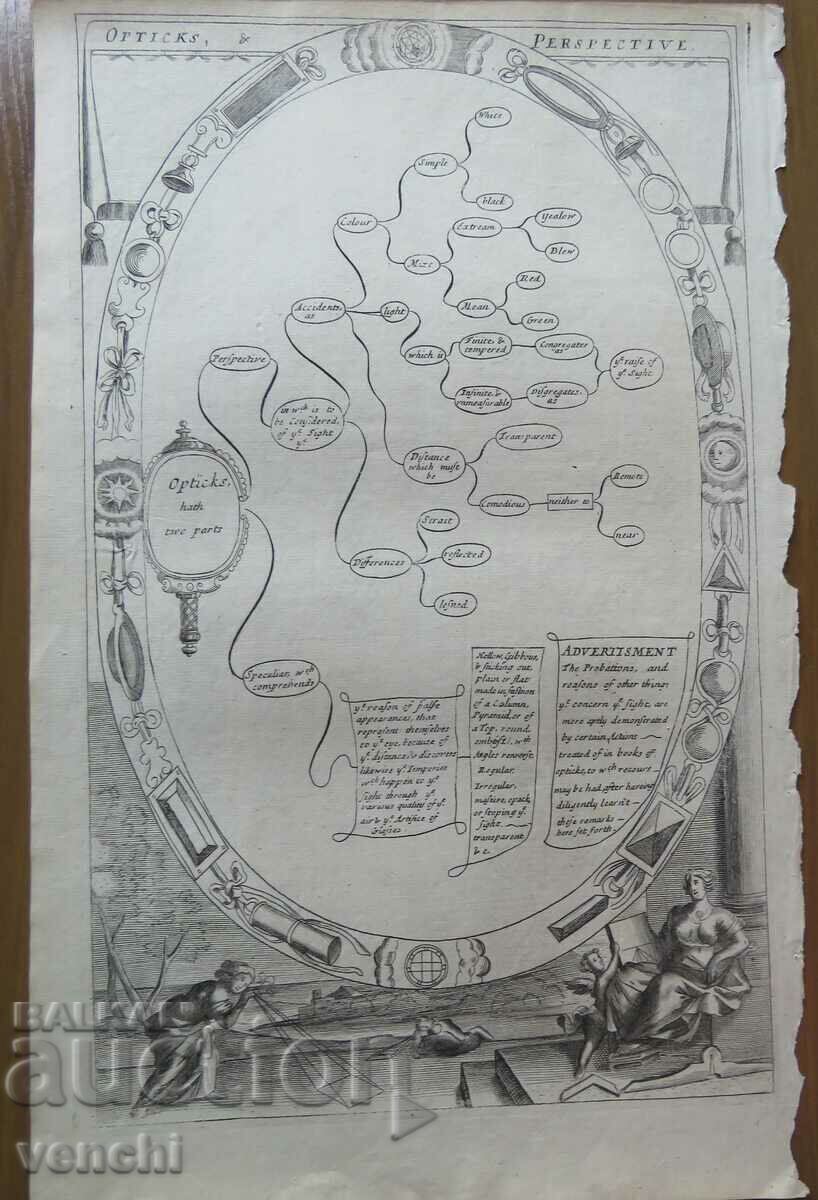 OPTICKS, & PERSPECTIVE.
White
Simple
black
Colour
Extream
Yealow
Blew
Mixt
Red
Mean
Green
Accidents,
as
light
which is
Finite, &
tempered
Congregates
as
Infinite, &
unmeasurable
Disgregates,
as
yᵉ raise of
yᵉ Sight
Perspective
in wᶜʰ is to
be Considered,
of yᵉ Sight
yᵉ
Distance
which must
be
Transparent
Comodious
neither to
Remote
near
Opticks,
hath
two parts
Differences
Strait
reflected
Speculiar, wᶜʰ
comprehends
yᵉ reason of false
appearances, that
represent themselves
to yᵉ eye, because of
yᵉ distance, & discovers
likewise yᵉ
wᶜʰ happen to yᵉ
sight through yᵉ
various quality of yᵉ
air & yᵉ Artifice of
Glasses
Hollow, Gibbous,
& sticking out,
plain or flat
made in fashion
of a Column,
Pyramid, or of
a Top, round
wᵗʰ
Angles
Regular.
Irregular,
massive, opack,
or stoping yᵉ
sight.
transparent,
& c.
ADVERTISMENT
The Probations, and
reasons of other things
yᵗ concern yᵉ sight, are
more aptly demonstrated
by certain Actions
treated of in books of
opticks, to wᶜʰ recours
may be had, after having
diligently learn't
these remarks
here set forth.
BALKAN
auction
venchi